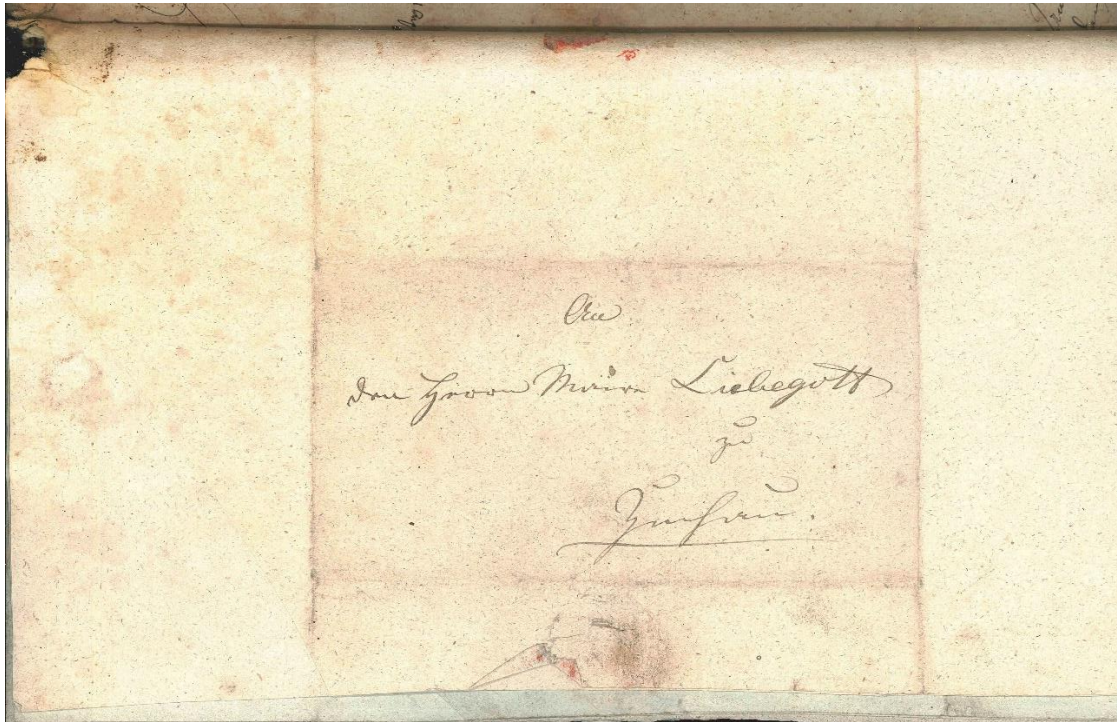 An
den Herrn Maire Liebegott
zu
Zuchau.